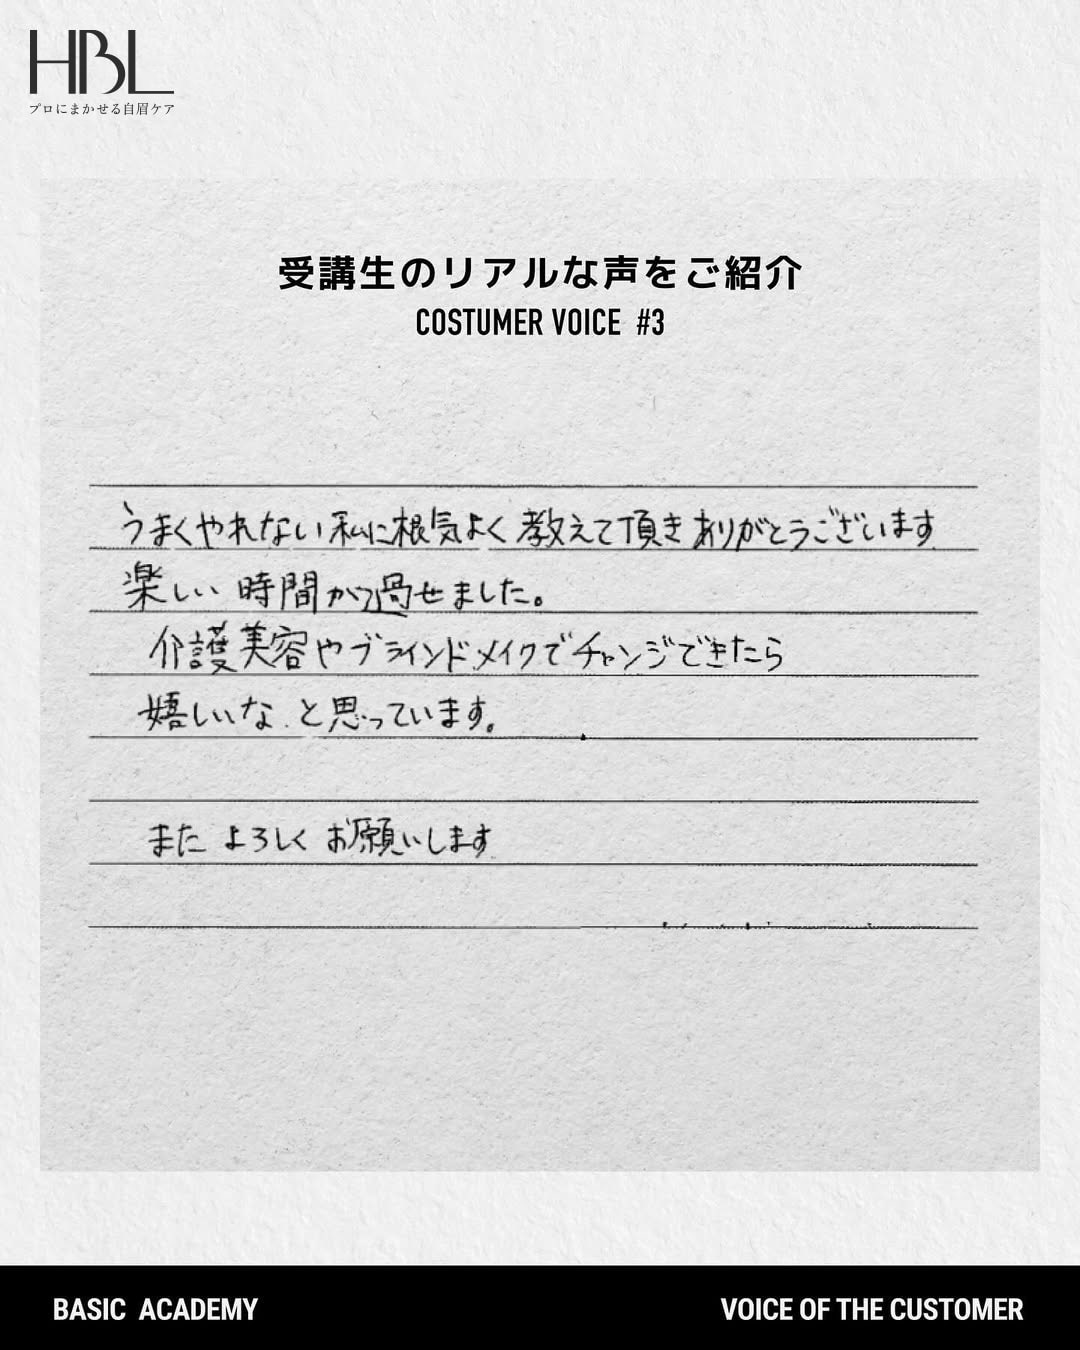 HBL
プロにまかせる自眉ケア
受講生のリアルな声をご紹介
COSTUMER VOICE #3
うまくやれない私に根気よく教えて頂きありがとうございます
楽しい時間がつ過せました。
介護美容やブラインドメイクでチャンジできたら
嬉しいな.と思っています。
また よろしく お願いします
BASIC ACADEMY
VOICE OF THE CUSTOMER